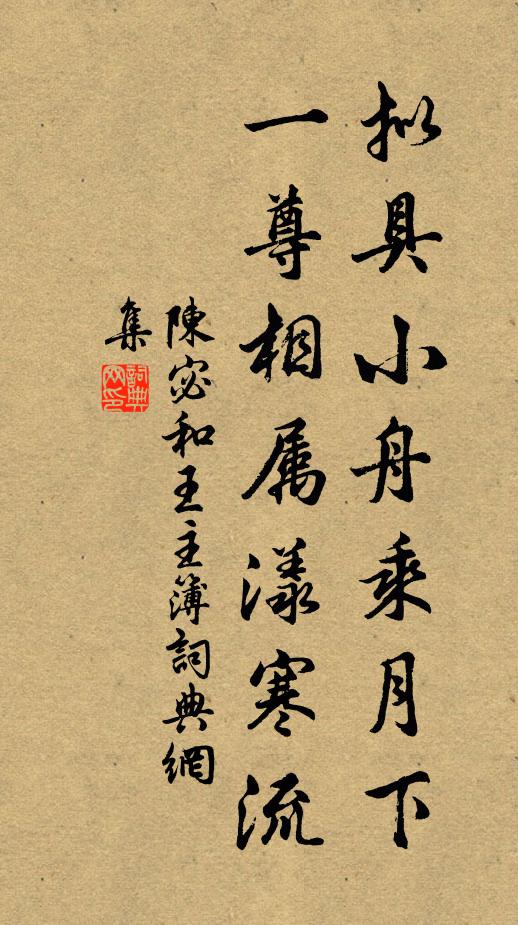 拟具小舟乘月下
一尊相属漾寒流
陳宓和王主簿詞典網
集
詞典网印